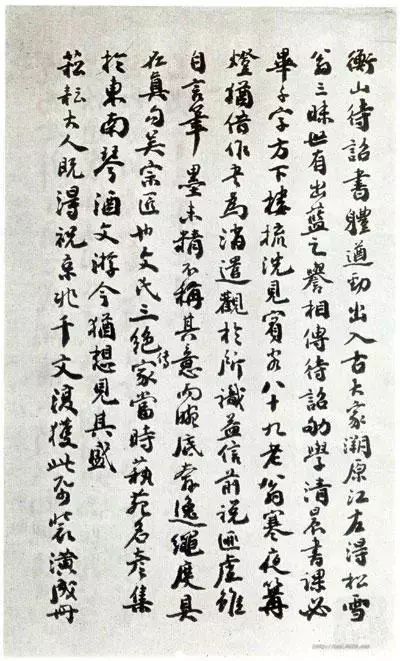 衡山待詔書體遒勁出入古大家溯原江左得松雪
翁三昧世有出藍之譽相傳待詔幼學清晨書課必
畢千字方下樓梳洗見賓客八十九老翁寒夜篝
燈猶借作書為消遣觀於所識益信前說匪虛雖
自言筆墨未精不稱其意而腕底奇逸繩度具
在真句吳宗匠也文氏三絕傳家當時藝苑名彥集
於東南琴酒文游今猶想見其盛
菘耘大人既得祝京兆千文復獲此帋裝潢成冊